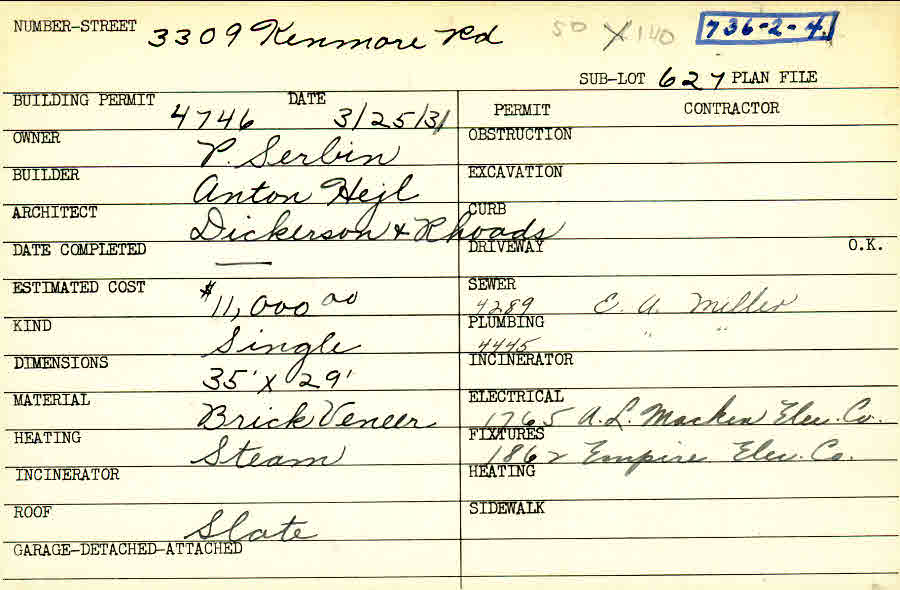 NUMBER-STREET 3309 Kenmore Rd 50 X 140 736-2-4
SUB-LOT 627 PLAN FILE
BUILDING PERMIT 4746 DATE 3/25/31
PERMIT CONTRACTOR
OWNER P. Serbin
OBSTRUCTION
BUILDER Anton Hejl
EXCAVATION
ARCHITECT Dickerson & Rhoads
CURB
DATE COMPLETED —
DRIVEWAY O.K.
ESTIMATED COST $11,000 00
SEWER 4289 E. A. Miller
KIND Single
PLUMBING 4445 " "
DIMENSIONS 35' X 29'
INCINERATOR
MATERIAL Brick Veneer
ELECTRICAL 1765 A. L. Elec. Co.
HEATING Steam
FIXTURES 1862 Empire Elec. Co.
INCINERATOR
HEATING
ROOF Slate
SIDEWALK
GARAGE-DETACHED-ATTACHED